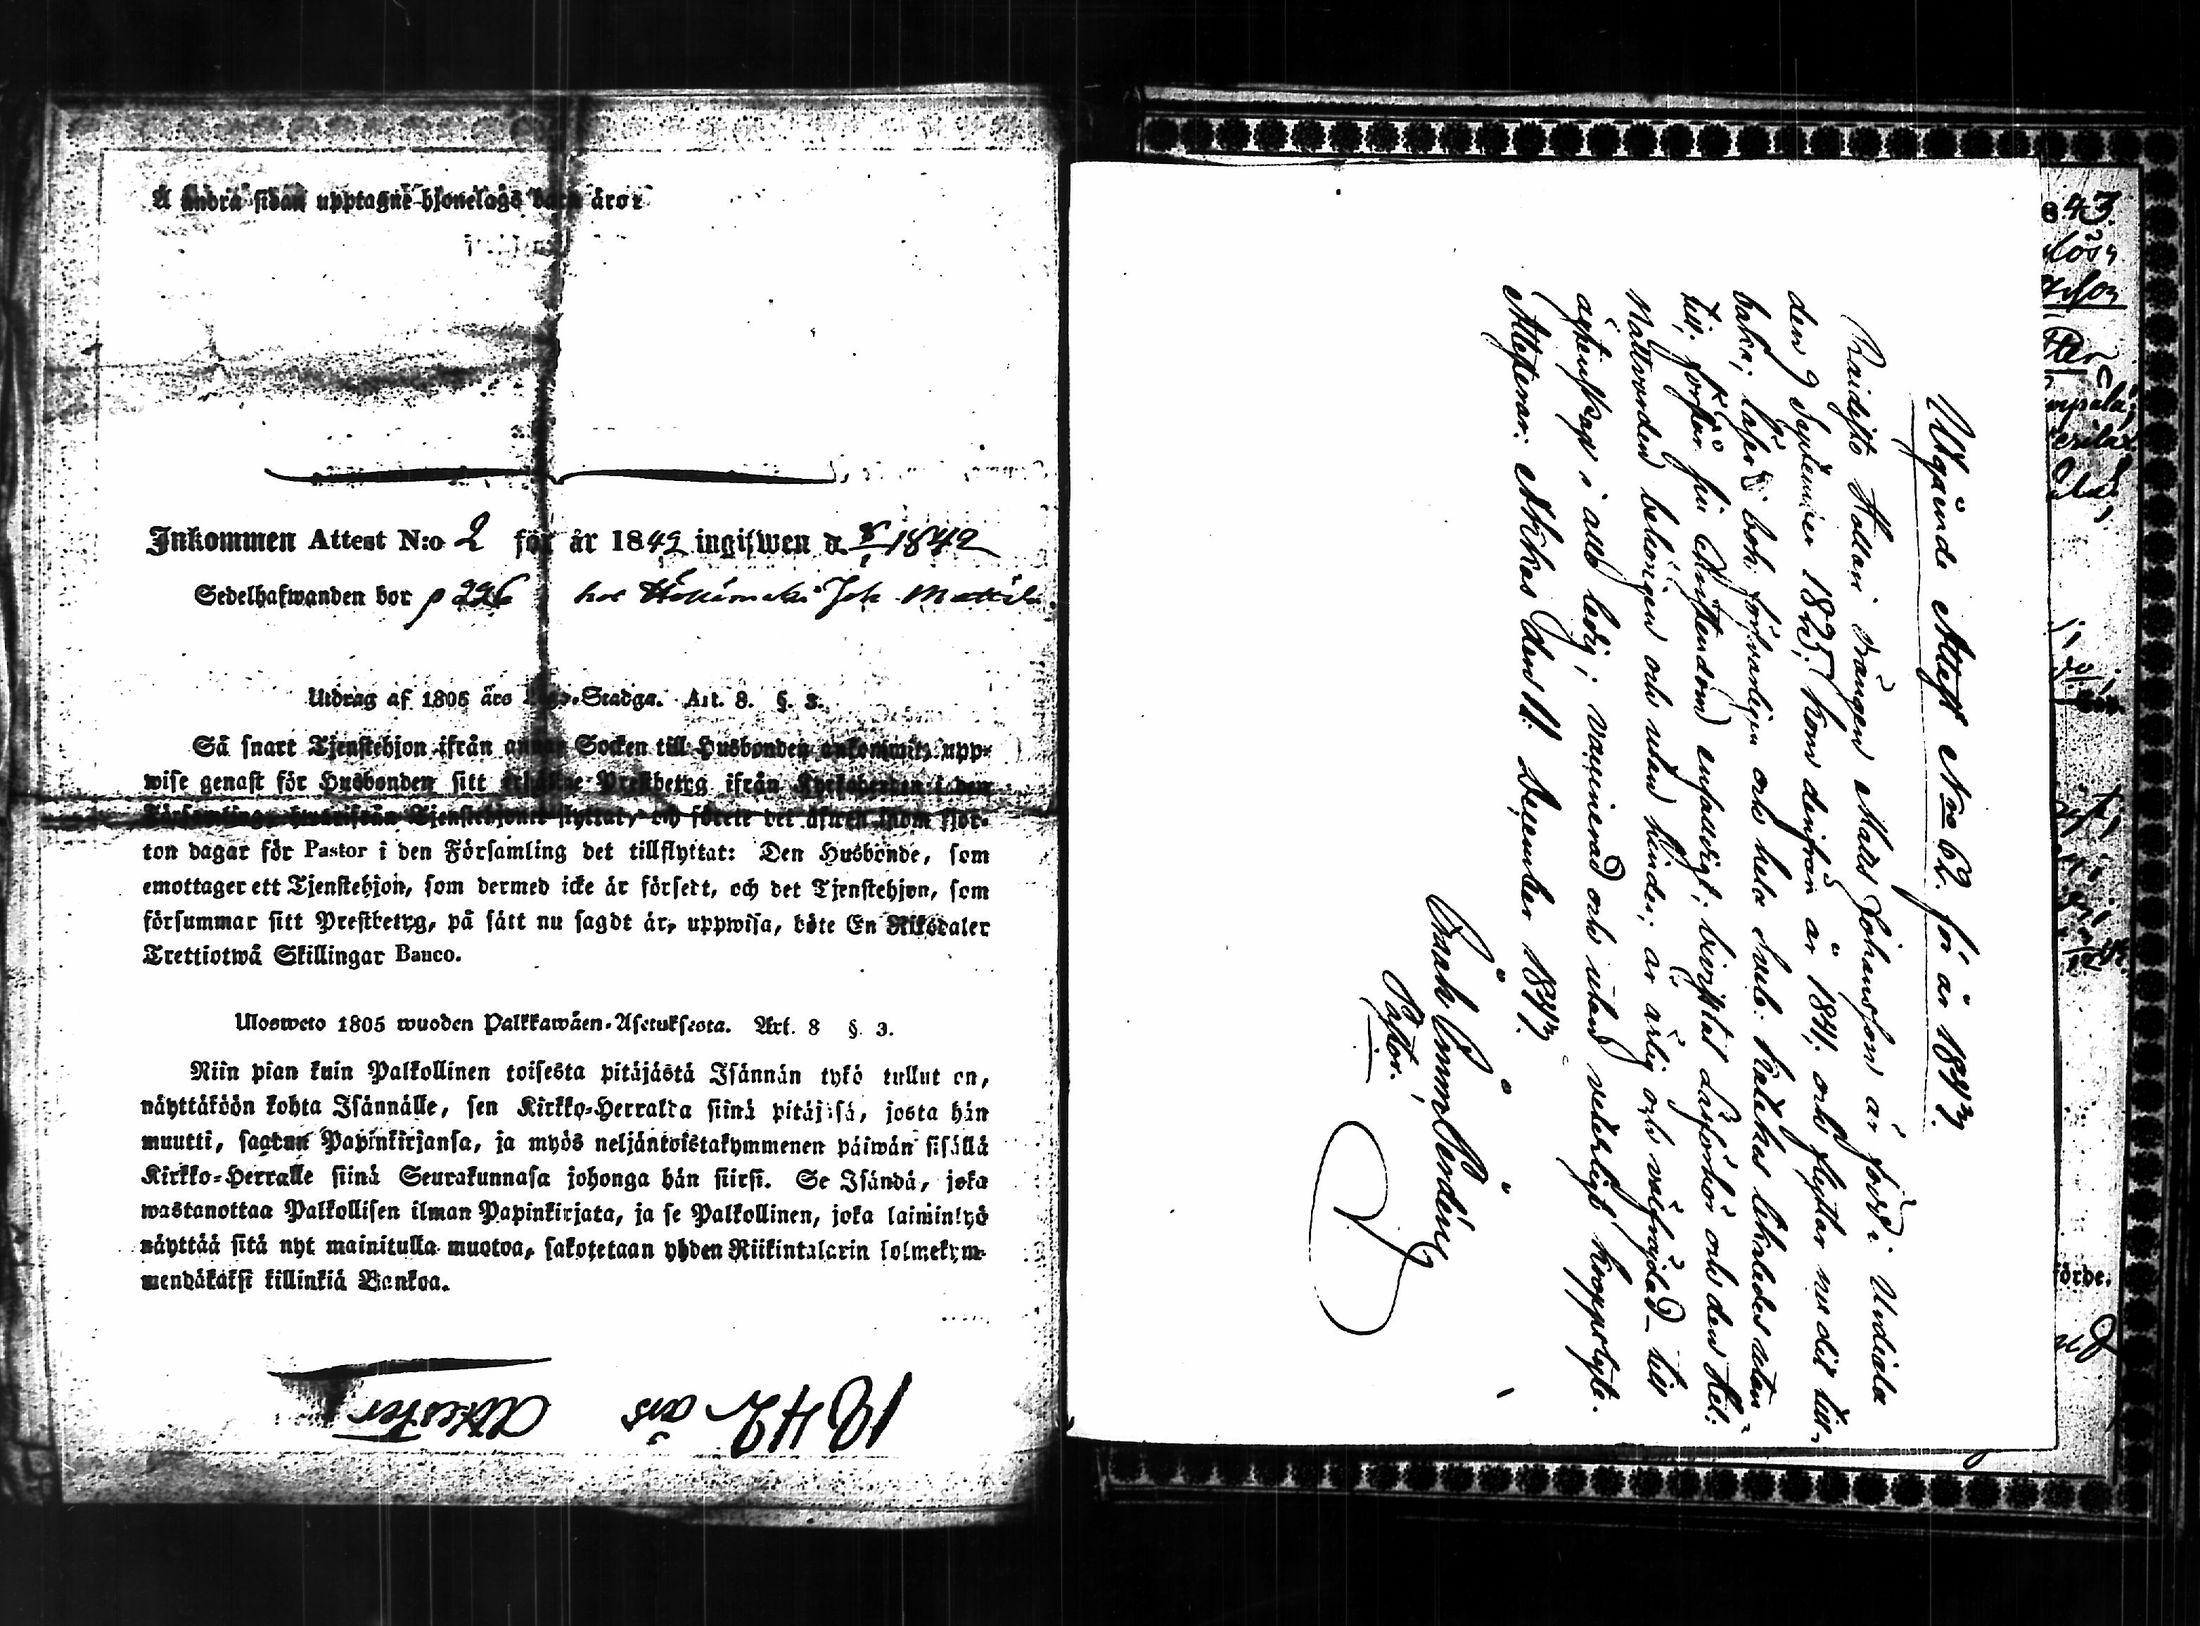 Å andra sidan upptagne hjonelags barn äro:
Inkommen Attest N:o 2 för år 1842 ingifwen d 8/1 1842
Sedelhafwanden bor p 226 hos Joh. Mattila
Utdrag af 1805 års Lego-Stadga. Art. 8. §. 3.
Så snart Tjenstehjon ifrån annan Socken till Husbonden ankommit, upp-
wise genast för Husbonden sitt erhållne Prestbetyg ifrån Kyrkoherden i den
Församling, hwarifrån Tjenstehjonet flyttat, och förete det äfwen inom fjor-
ton dagar för Pastor i den Församling det tillflyttat: Den Husbonde, som
emottager ett Tjenstehjon, som dermed icke är försedt, och det Tjenstehjon, som
försummar sitt Prestbetyg, på sätt nu sagdt är, uppwisa, böte En Riksdaler
Trettiotwå Skillingar Banco.
Ulosweto 1805 wuoden Palkkawäen-Asetuksesta. Art. 8 §. 3.
Niin pian kuin Palkollinen toisesta pitäjästä Isännän tykö tullut on,
näyttäköön kohta Isännälle, sen Kirkko-Herralta siinä pitäjäsä, josta hän
muutti, saatun Papinkirjansa, ja myös neljäntoistakymmenen päiwän sisällä
Kirkko-Herralle siinä Seurakunnasa johonga hän siirsi. Se Isändä, joka
wastanottaa Palkollisen ilman Papinkirjata, ja se Palkollinen, joka laiminlyö
näyttää sitä nyt mainitulla muotoa, sakotetaan yhden Riikintalarin kolmekym-
mendäkaksi killinkiä Bankoa.
1842 års
Attester
Utgående Attest N:ro 62. för år 1843.
drängen Matts Johansson är född i Urdiala
den 9 September 1825; kom derifrån år 1841. och flyttar nu dit till-
baka; läser i bok försvarligen och hela Sveb. Katekes likaledes utan-
till; förstår sin Christendom enfaldigt; bivistat Läsförhör och den Hel.
Nattvarden behörigen och utan hinder; är ärlig och välfrejdad – till
ägtenskap i allo ledig; vaccinerad och utan vederligt kroppslyte.
Attesterar. Akkas den 11. December 1843.
Pastor.